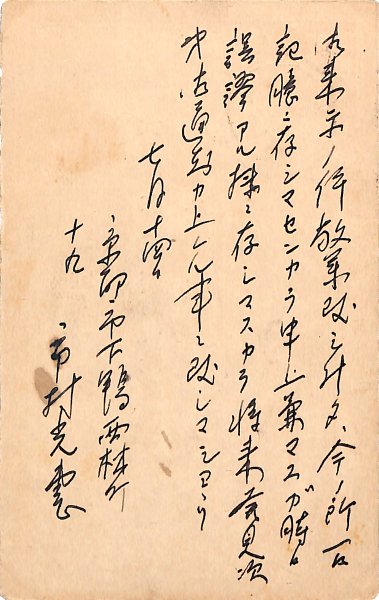 御来示ノ件敬承致シ升タ、今ノ所一向
記憶ニ存シマセンカラ申上兼マスガ時日
誤謬アル様ニ存シマスカラ将来発見次
第御通知申上クル事ニ致シマショウ
七月十四日
京都市下鴨西林町
十九
市村光恵